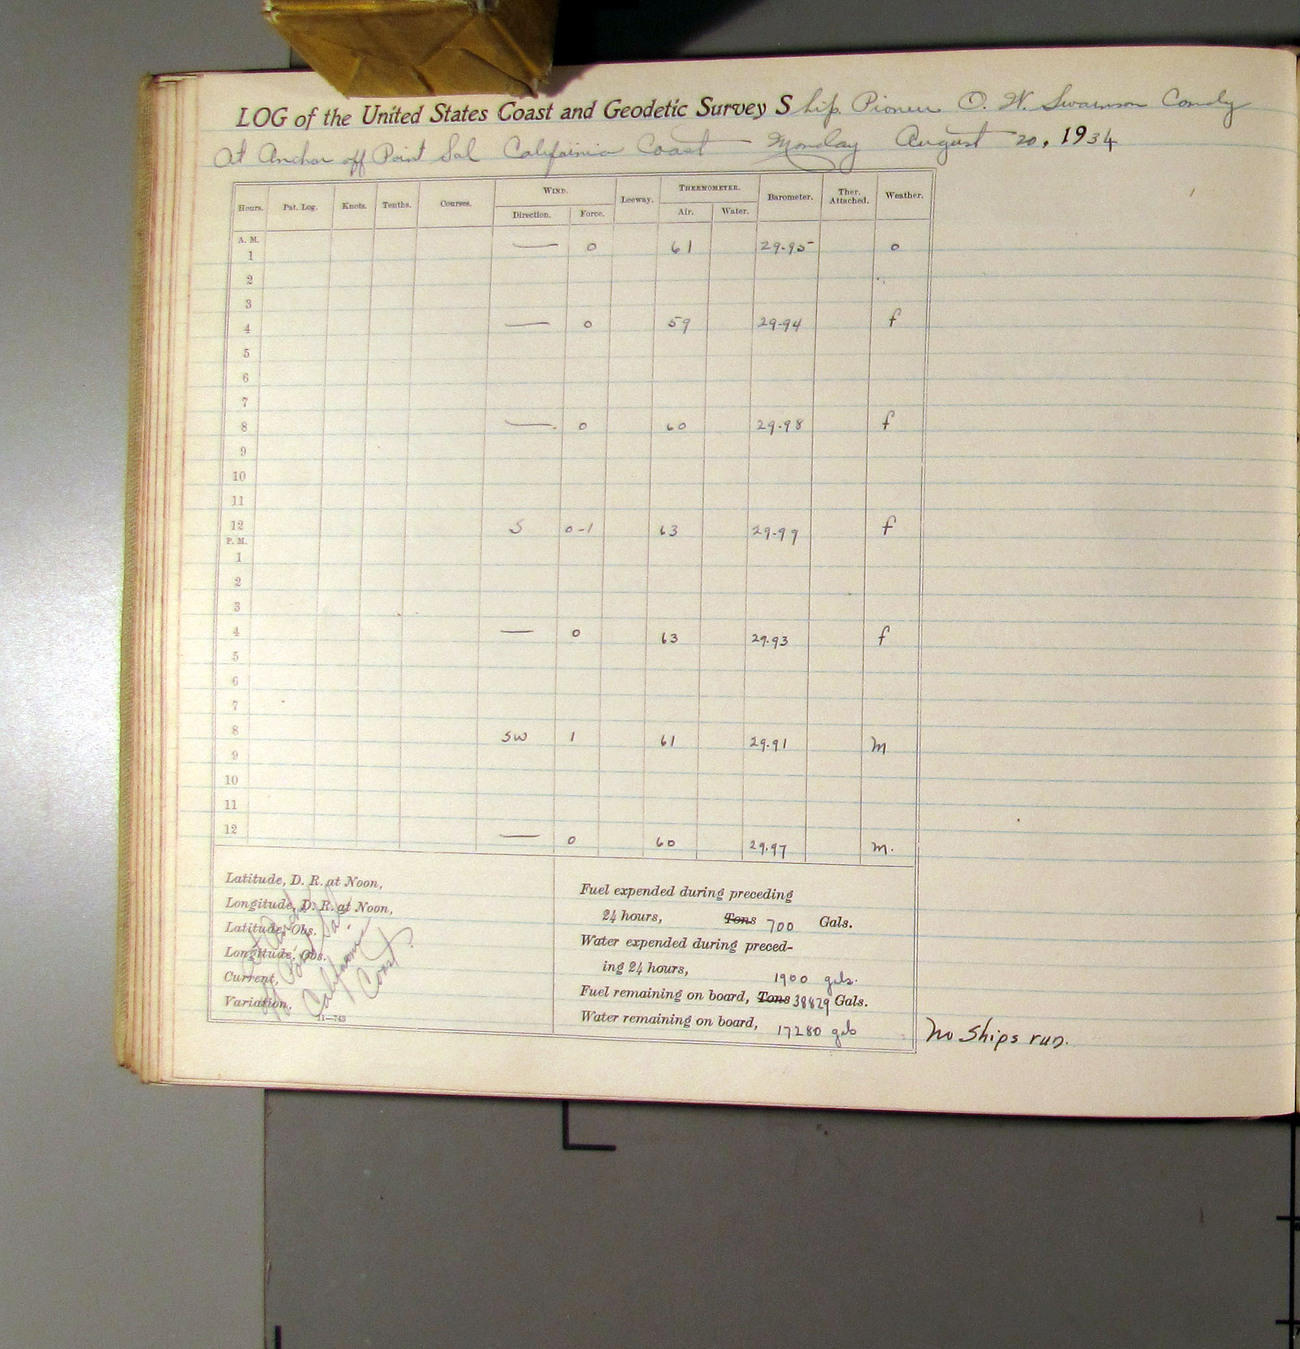 LOG of the United States Coast and Geodetic Survey Ship Pioneer O. W. Swainson Comdg
At Anchor off Point Sal California Coast — Monday August 20, 1934
Hours. Pat. Log. Knots. Tenths. Courses. WIND. Leeway. THERMOMETER. Barometer. Ther. Attached. Weather.
Direction. Force. Air. Water.
A. M.
1 — 0 61 29.95 o
2
3
4 — 0 59 29.94 f
5
6
7
8 — 0 60 29.98 f
9
10
11
12 S 0-1 63 29.99 f
P. M.
1
2
3
4 — 0 63 29.93 f
5
6
7
8 SW 1 61 29.91 m
9
10
11
12 — 0 60 29.97 m.
Latitude, D. R. at Noon,
Longitude, D. R. at Noon,
Latitude, Obs.
Longitude, Obs.
Current,
Variation,
11—743
off Point Sal
California
Coast
Fuel expended during preceding
24 hours, Tons 700 Gals.
Water expended during preced-
ing 24 hours, 1900 gals.
Fuel remaining on board, Tons 38829 Gals.
Water remaining on board, 17280 gals
No Ships run.